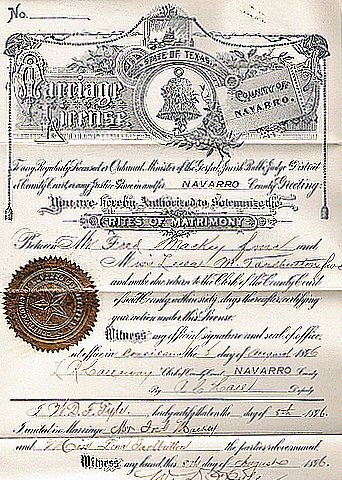 No.
STATE OF TEXAS
Marriage
License
COUNTY OF
NAVARRO.
To any Regularly Licensed or Ordained Minister of the Gospel, Jewish Rabbi, Judge District
or County Court or any Justice Peace in and for NAVARRO County Greeting:
You are hereby Authorized to Solemnize the
RITES OF MATRIMONY
Between Mr Fred Mackey and
Miss Lena M. Tarbutton
and make due return to the Clerk of the County Court
of said County, within sixty days thereafter, certifying
your action under this License.
Witness my official signature and seal of office,
at office in Corsicana the 3 day of August 1896
Clerk of County Court NAVARRO County
By Deputy
I W.D.F. hereby certify that on the day of 5th 1896
I united in Marriage Mr Fred Mackey
and Miss Lena Tarbutton the parties above named.
Witness my hand, this 5th day of August 1896